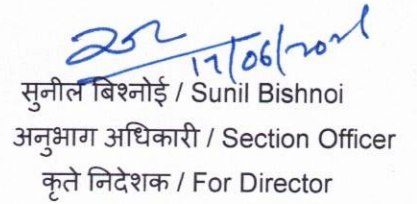 17/06/2021
सुनील बिश्नोई / Sunil Bishnoi
अनुभाग अधिकारी / Section Officer
कृते निदेशक / For Director